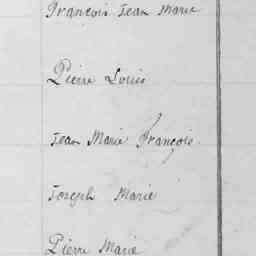 François Jean Marie
Pierre Louis
Jean Marie François
Joseph Marie
Pierre Marie